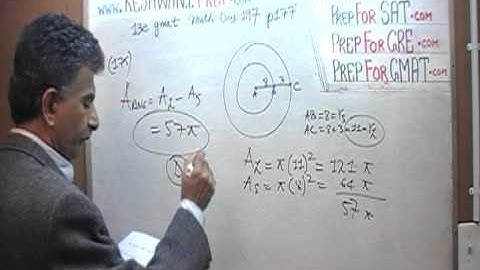 www.KESHWANI PREP.com
13e gmat Math Q 197 p177
PREP FOR SAT.com
PREP FOR GRE.com
PREP FOR GMAT.com
(175)
A RING = A L - A S
= 57π
8 3
A B C
AB = 8 = r s
AC = 8 + 3 = 11 = r L
A L = π(11)² = 121 π
A S = π(8)² = 64 π
57 π